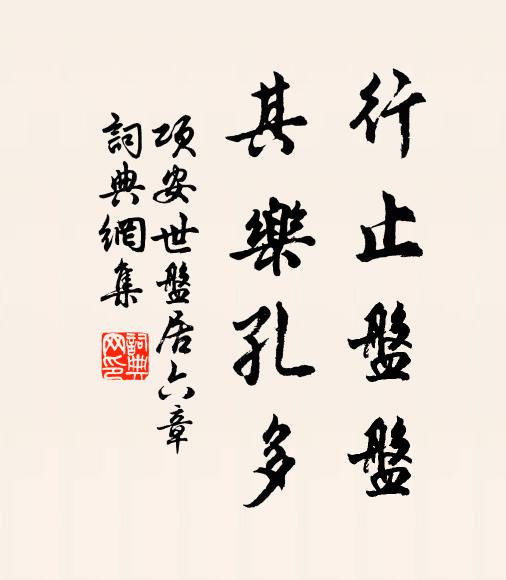 行止盤盤
其樂孔多
項安世盤居六章
詞典網集
詞典网印